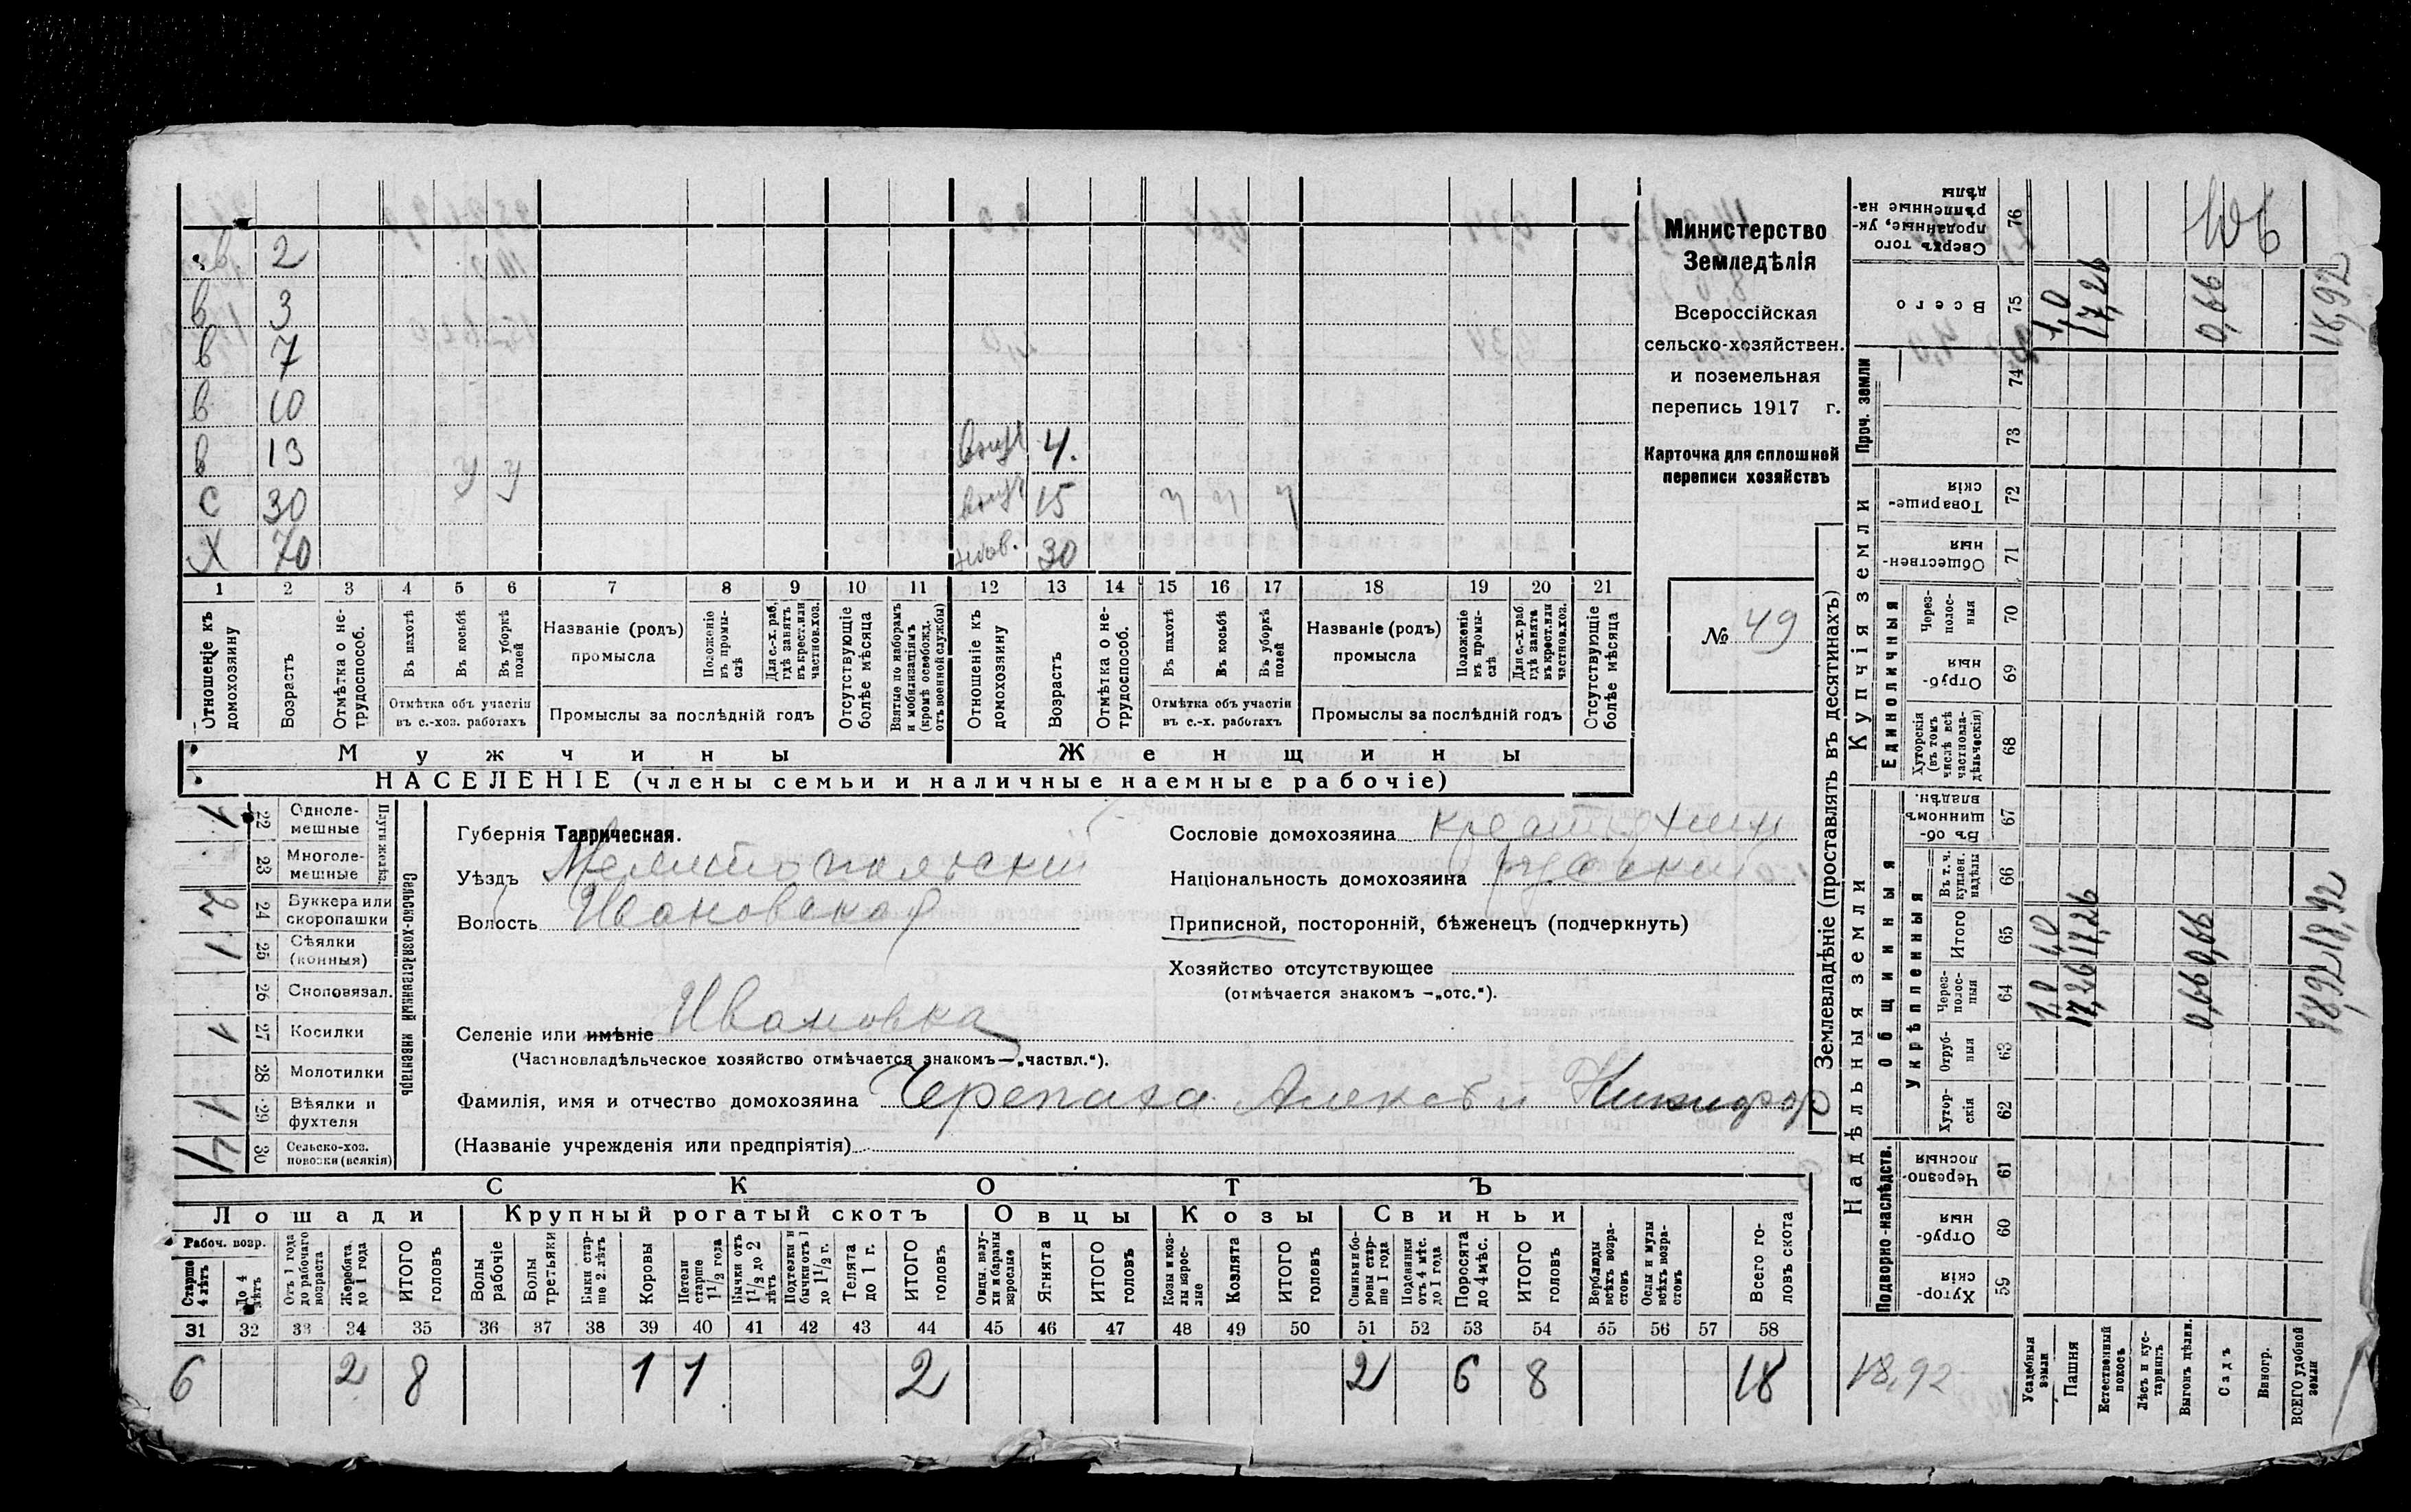 Министерство
Земледѣлія
Всероссійская
сельско-хозяйствен.
и поземельная
перепись 1917 г.
Карточка для сплошной
переписи хозяйствъ
№ 49
в 2
в 3
в 7
в 10
в 13 внук 4.
у у
С 30 внук 15 у у у
Х 70 нев. 30
1 2 3 4 5 6 7 8 9 10 11 12 13 14 15 16 17 18 19 20 21
Отношеніе къ домохозяину
Возрастъ
Отмѣтка о не-трудоспособ.
Въ пахотѣ
Въ косьбѣ
Въ уборкѣ полей
Отмѣтка объ участіи
въ с.-хоз. работахъ
Названіе (родъ)
промысла
Положеніе въ промы-слѣ
Для с.-х. раб, гдѣ занятъ въ крест. или частнов. хоз.
Промыслы за послѣдній годъ
Отсутствующіе болѣе мѣсяца
Взятые по наборамъ и мобилизаціямъ (кромѣ освобожд. отъ военной службы)
Отношеніе къ домохозяину
Возрастъ
Отмѣтка о не-трудоспособ.
Въ пахотѣ
Въ косьбѣ
Въ уборкѣ полей
Отмѣтка объ участіи
въ с.-х. работахъ
Названіе (родъ)
промысла
Положеніе въ промы-слѣ
Для с.-х. раб. гдѣ заняте въ крест. или частнов. хоз.
Промыслы за послѣдній годъ
Отсутствующіе болѣе мѣсяца
Мужчины Женщины
НАСЕЛЕНІЕ (члены семьи и наличные наемные рабочіе)
Сельско-хозяйственный инвентарь
Плуги желѣз.
1 22 Однолемешные
23 Многолемешные
2 24 Буккера или скоропашки
1 25 Сѣялки (конныя)
26 Сноповязал.
1 27 Косилки
28 Молотилки
1 29 Вѣялки и фухтеля
30 Сельско-хоз. повозки (всякія)
Губернія Таврическая.
Уѣздъ Мелитопольский
Волость Ивановская
Сословіе домохозяина крестьянин
Національность домохозяина русский
Приписной, посторонній, бѣженецъ (подчеркнуть)
Хозяйство отсутствующее
(отмѣчается знакомъ —„отс.“).
Селеніе или имѣніе Ивановка
(Частновладѣльческое хозяйство отмѣчается знакомъ—„частвл.“).
Фамилія, имя и отчество домохозяина Черепаха Алексѣй Никифор
(Названіе учрежденія или предпріятія)
СКОТЪ
Лошади Крупный рогатый скотъ Овцы Козы Свиньи
Рабоч. возр.
Старше 4 лѣтъ
До 4 лѣтъ
Отъ 1 года до рабочаго возраста
Жеребята до 1 года
ИТОГО головъ
Волы рабочіе
Волы третьяки
Быки стар-ше 2 лѣтъ
Коровы
Нетели старше 1 1/2 года
Бычки отъ 1 1/2 до 2 лѣтъ
Подтелки и бычки отъ 1 до 1 1/2 г.
Телята до 1 г.
ИТОГО головъ
Овцы, валу-хи и бараны взрослые
Ягнята
ИТОГО головъ
Козы и коз-лы взрос-лые
Козлята
ИТОГО головъ
Свиньи и бо-ровы стар-ше 1 года
Подсвинки отъ 4 мѣс. до 1 года
Поросята до 4 мѣс.
ИТОГО головъ
Верблюды всѣхъ возра-стовъ
Ослы и мулы всѣхъ возра-стовъ
Всего го-ловъ скота
31 32 33 34 35 36 37 38 39 40 41 42 43 44 45 46 47 48 49 50 51 52 53 54 55 56 57 58
6 2 8 1 1 2 2 6 8 18
Землевладѣніе (проставлять въ десятинахъ)
Надѣльныя земли Купчія земли Проч. земли
Подворно-наслѣдств.
Общинныя
Укрѣпленныя
Единоличныя
Хутор-скія 59
Отруб-ныя 60
Черезпо-лосныя 61
Хутор-скія 62
Отруб-ныя 63
Черезполос-ныя 64
Итого 65
Въ т. ч. куплен. надѣлы 66
Въ об-щинномъ владѣн. 67
Хуторскія (въ томъ числѣ всѣ частновла-дѣльческія) 68
Отруб-ныя 69
Через-полос-ныя 70
Обществен-ныя 71
Товарище-скія 72
73
74
Всего 75
Сверхъ того проданные, ук-рѣпленные на-дѣлы 76
Усадебныя земли 1,0 1,0 1,0
Пашня 17,26 17,26 17,26
Естественный покосъ
Лѣсъ и кус-тарникъ
Выгонъ цѣлин. 0,66 0,66 0,66
Садъ
Виногр.
ВСЕГО удобной земли 18,92 18,92 18,92
18,92